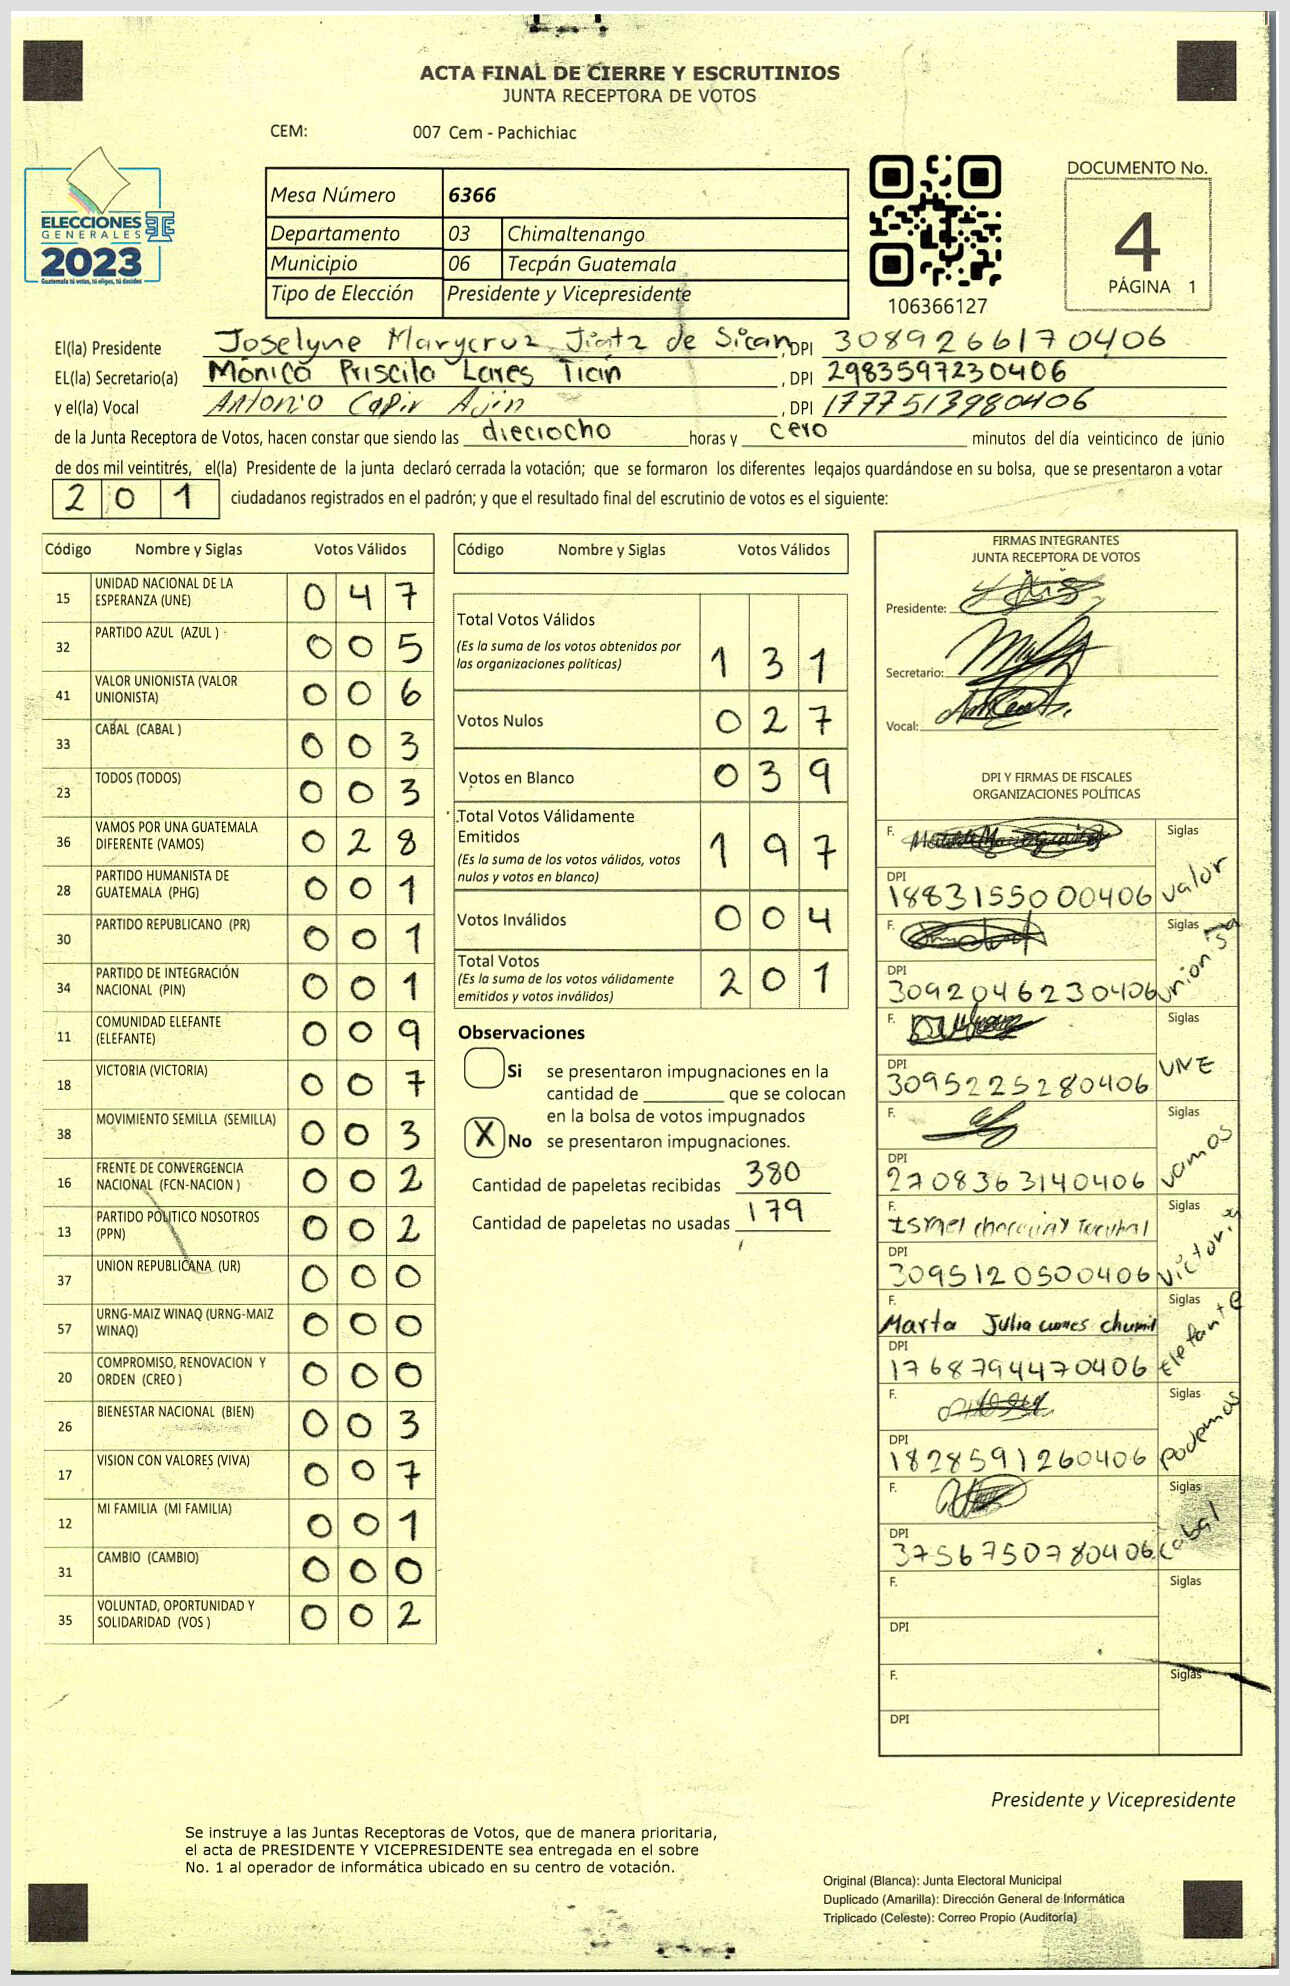 ACTA FINAL DE CIERRE Y ESCRUTINIOS
JUNTA RECEPTORA DE VOTOS
CEM: 007 Cem - Pachichiac
ELECCIONES
GENERALES
2023
Guatemala tú votas, tú eliges, tú decides
Mesa Número 6366
Departamento 03 Chimaltenango
Municipio 06 Tecpán Guatemala
Tipo de Elección Presidente y Vicepresidente
106366127
DOCUMENTO No.
4
PÁGINA 1
El(la) Presidente Joselyne Marycruz de Sican, DPI 3089266170406
EL(la) Secretario(a) Monica Priscila Lares Ticún, DPI 2983597230406
y el(la) Vocal Antonio Ajin, DPI 1777513980406
de la Junta Receptora de Votos, hacen constar que siendo las dieciocho horas y cero minutos del día veinticinco de junio
de dos mil veintitrés, el(la) Presidente de la junta declaró cerrada la votación; que se formaron los diferentes legajos guardándose en su bolsa, que se presentaron a votar
201 ciudadanos registrados en el padrón; y que el resultado final del escrutinio de votos es el siguiente:
Código Nombre y Siglas Votos Válidos
15 UNIDAD NACIONAL DE LA ESPERANZA (UNE) 047
32 PARTIDO AZUL (AZUL) 005
41 VALOR UNIONISTA (VALOR UNIONISTA) 006
33 CABAL (CABAL) 003
23 TODOS (TODOS) 003
36 VAMOS POR UNA GUATEMALA DIFERENTE (VAMOS) 028
28 PARTIDO HUMANISTA DE GUATEMALA (PHG) 001
30 PARTIDO REPUBLICANO (PR) 001
34 PARTIDO DE INTEGRACIÓN NACIONAL (PIN) 001
11 COMUNIDAD ELEFANTE (ELEFANTE) 009
18 VICTORIA (VICTORIA) 007
38 MOVIMIENTO SEMILLA (SEMILLA) 003
16 FRENTE DE CONVERGENCIA NACIONAL (FCN-NACION) 002
13 PARTIDO POLITICO NOSOTROS (PPN) 002
37 UNION REPUBLICANA (UR) 000
57 URNG-MAIZ WINAQ (URNG-MAIZ WINAQ) 000
20 COMPROMISO, RENOVACION Y ORDEN (CREO) 000
26 BIENESTAR NACIONAL (BIEN) 003
17 VISION CON VALORES (VIVA) 007
12 MI FAMILIA (MI FAMILIA) 001
31 CAMBIO (CAMBIO) 000
35 VOLUNTAD, OPORTUNIDAD Y SOLIDARIDAD (VOS) 002
Código Nombre y Siglas Votos Válidos
Total Votos Válidos
(Es la suma de los votos obtenidos por
las organizaciones políticas) 131
Votos Nulos 027
Votos en Blanco 039
Total Votos Válidamente
Emitidos
(Es la suma de los votos válidos, votos
nulos y votos en blanco) 197
Votos Inválidos 004
Total Votos
(Es la suma de los votos válidamente
emitidos y votos inválidos) 201
Observaciones
Si se presentaron impugnaciones en la
cantidad de ________ que se colocan
en la bolsa de votos impugnados
X No se presentaron impugnaciones.
Cantidad de papeletas recibidas 380
Cantidad de papeletas no usadas 179
FIRMAS INTEGRANTES
JUNTA RECEPTORA DE VOTOS
Presidente:
Secretario:
Vocal:
DPI Y FIRMAS DE FISCALES
ORGANIZACIONES POLÍTICAS
F. Siglas
DPI 1883155000406 valor
F. Siglas
DPI 3092046230406 unionista
F. Siglas
DPI 3095225280406 UNE
F. Siglas
DPI 2708363140406 vamos
F. Ismel Siglas
DPI 3095120500406 victoria
F. Marta Julia Siglas
DPI 1768794470406 Elefante
F. Siglas
DPI 1828591260406 podemos
F. Siglas
DPI 3756750780406 Cabal
F. Siglas
DPI
F. Siglas
DPI
Presidente y Vicepresidente
Se instruye a las Juntas Receptoras de Votos, que de manera prioritaria,
el acta de PRESIDENTE Y VICEPRESIDENTE sea entregada en el sobre
No. 1 al operador de informática ubicado en su centro de votación.
Original (Blanca): Junta Electoral Municipal
Duplicado (Amarilla): Dirección General de Informática
Triplicado (Celeste): Correo Propio (Auditoría)